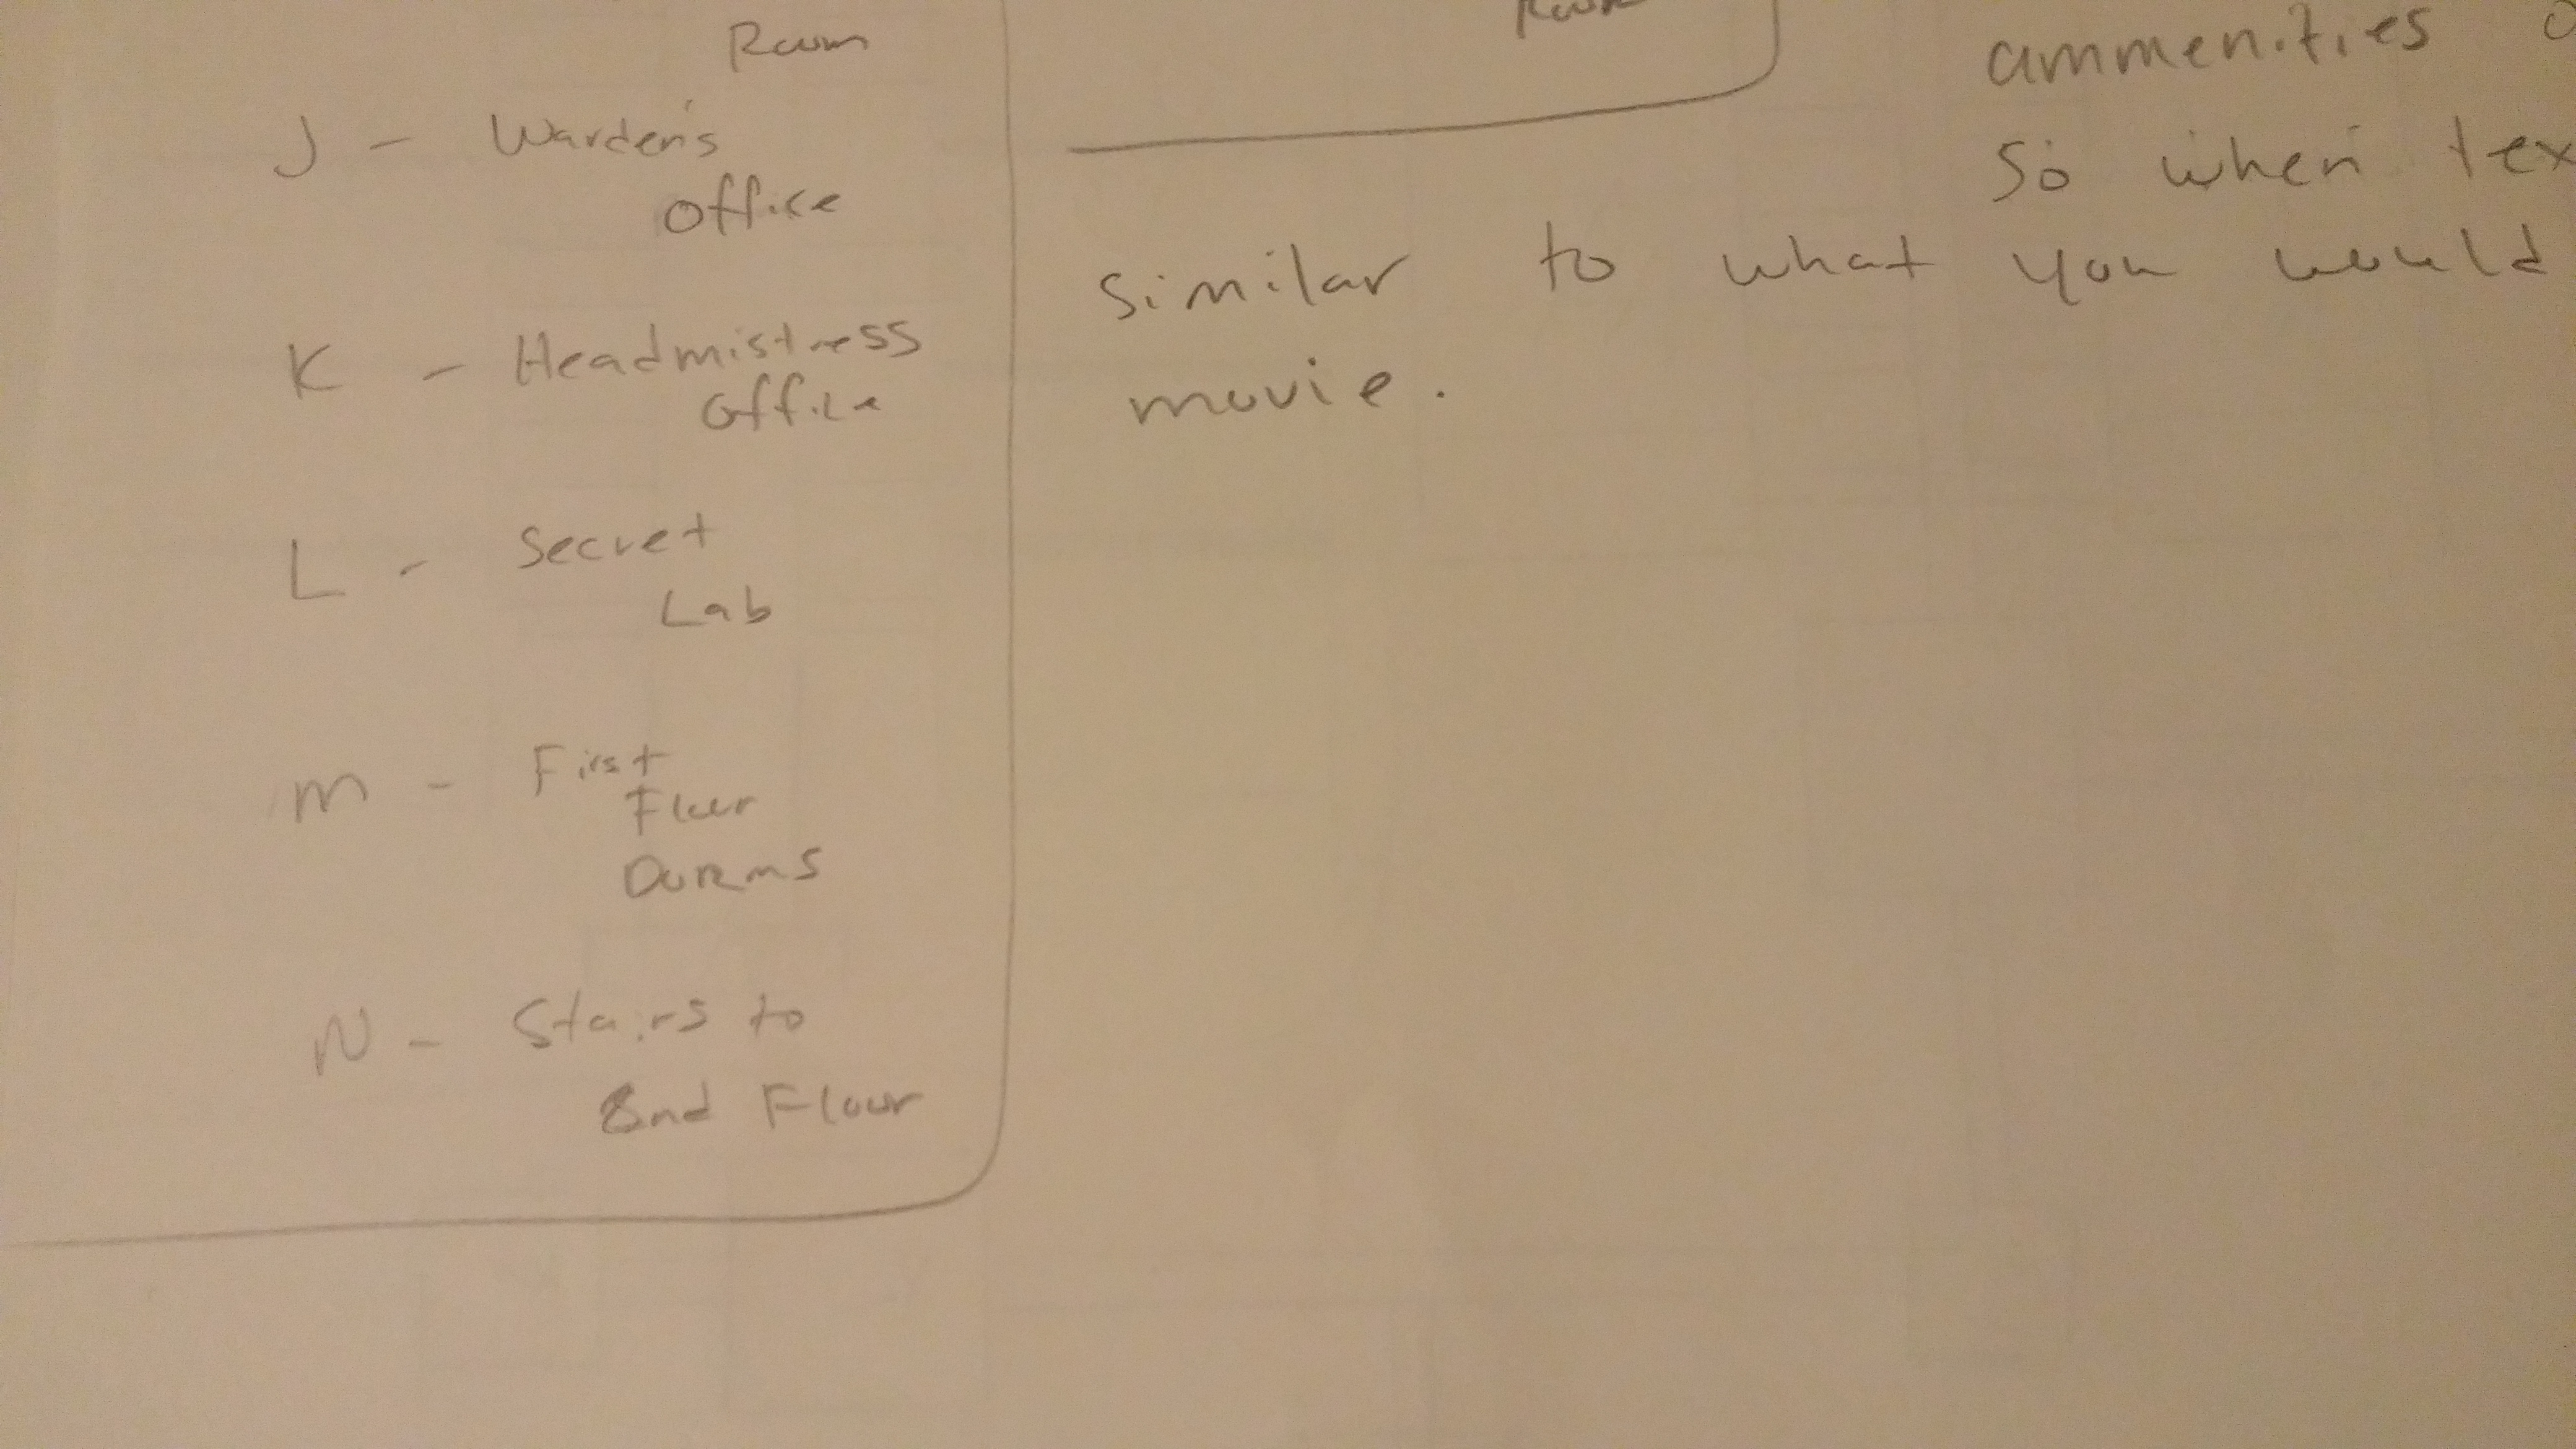 Room
J - Warden's
Office
K - Headmistress
Office
L - Secret
Lab
M - First
Floor
Dorms
N - Stairs to
2nd Floor
Room
ammenities
So when tex
similar to what you would
movie.